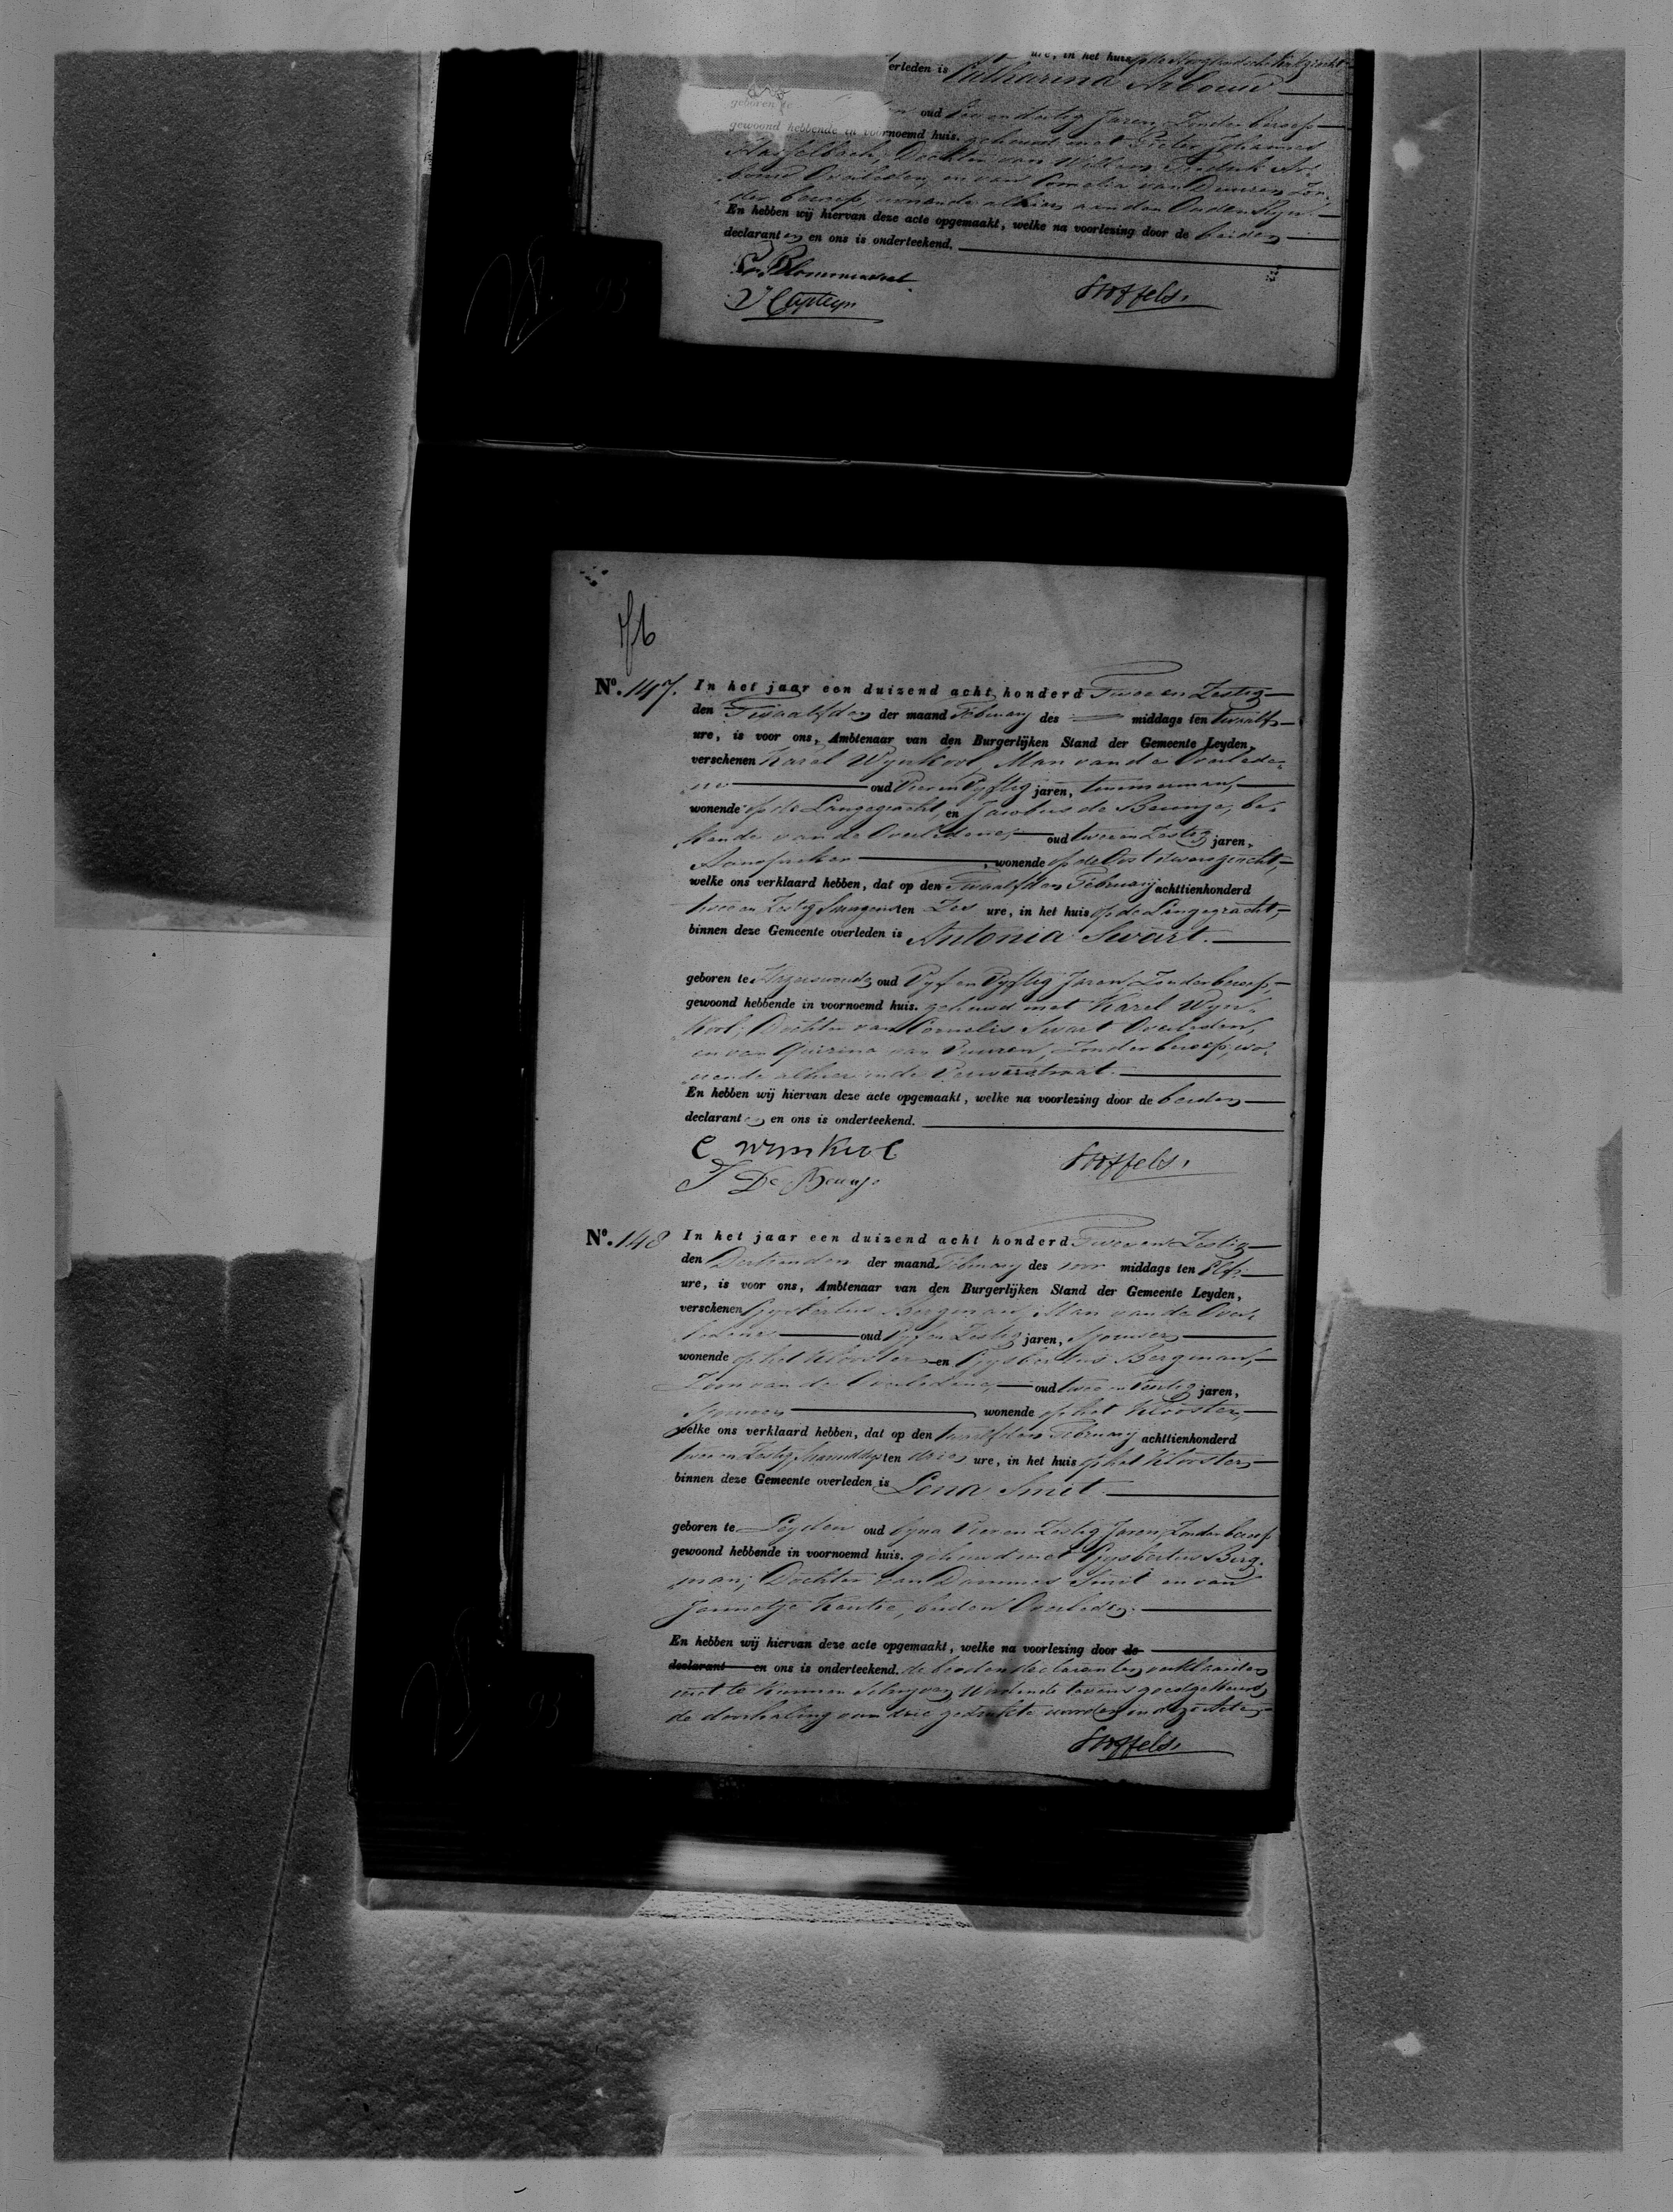 ure, in het huis
erleden is Catharina Arbouw
geboren te oud en dertig Jaren, Zonder beroep
gewoond hebbende in voornoemd huis. gehuwd met Pieter Johannes
Dochter van Willem Fredrik Ar-
bouw Overleden, en van Cornelia van Duuren Zon-
der beroep, wonende alhier aan den Ouden Ryn.
En hebben wij hiervan deze acte opgemaakt, welke na voorlezing door de beiden
declaranten en ons is onderteekend.
Stoffels
76
N°. 147. In het jaar een duizend acht honderd Twee en Zestig
den Twaalfden der maand February des middags ten twaalf
ure, is voor ons, Ambtenaar van den Burgerlijken Stand der Gemeente Leyden,
verschenen Karel Wynkool, Man van de Overlede-
ne oud Vier en Vyftig jaren, timmerman,
wonende op de Langegracht, en Jacobus de Beunje, be-
kende van de Overledene, oud twee en Zestig jaren,
wonende op de Oostdwarsgracht,
welke ons verklaard hebben, dat op den Twaalfden February achttienhonderd
twee en Zestig Smorgens ten Zes ure, in het huis op de Langegracht,
binnen deze Gemeente overleden is Antonia Swart.
geboren te Hazerswoude oud Vyf en Vyftig Jaren, Zonder beroep,
gewoond hebbende in voornoemd huis. gehuwd met Karel Wyn-
kool; Dochter van Cornelis Swart Overleden,
en van Quirina van Vuuren, Zonder beroep, wo-
nende alhier in de Verwerstraat.
En hebben wij hiervan deze acte opgemaakt, welke na voorlezing door de beiden
declaranten en ons is onderteekend.
C Wynkool
J De Beunje
Stoffels
N°. 148 In het jaar een duizend acht honderd Twee en Zestig
den Dertienden der maand February des voor middags ten Elf
ure, is voor ons, Ambtenaar van den Burgerlijken Stand der Gemeente Leyden,
verschenen Gysbertus Bergman, Man van de Over-
ledene oud Vyf en Zestig jaren, Spouwer,
wonende op het Klooster en Gysbertus Bergman,
Zoon van de Overledene, oud twee en Veertig jaren,
Spouwer, wonende op het Klooster,
welke ons verklaard hebben, dat op den twaalfden February achttienhonderd
twee en Zestig, Snamiddags ten drie ure, in het huis op het Klooster,
binnen deze Gemeente overleden is Lena Smit
geboren te Leyden oud byna Vier en Zestig Jaren, Zonder beroep
gewoond hebbende in voornoemd huis. gehuwd met Gysbertus Berg-
man; Dochter van Dammes Smit en van
Jannetje Kantie, beiden Overleden.
En hebben wij hiervan deze acte opgemaakt, welke na voorlezing door de
declarant en ons is onderteekend. de beiden declaranten verklaarden
niet te kunnen schryven, Wordende tevens goedgekeurd
de doorhaling van drie gedrukte woorden in deze Acte
Stoffels